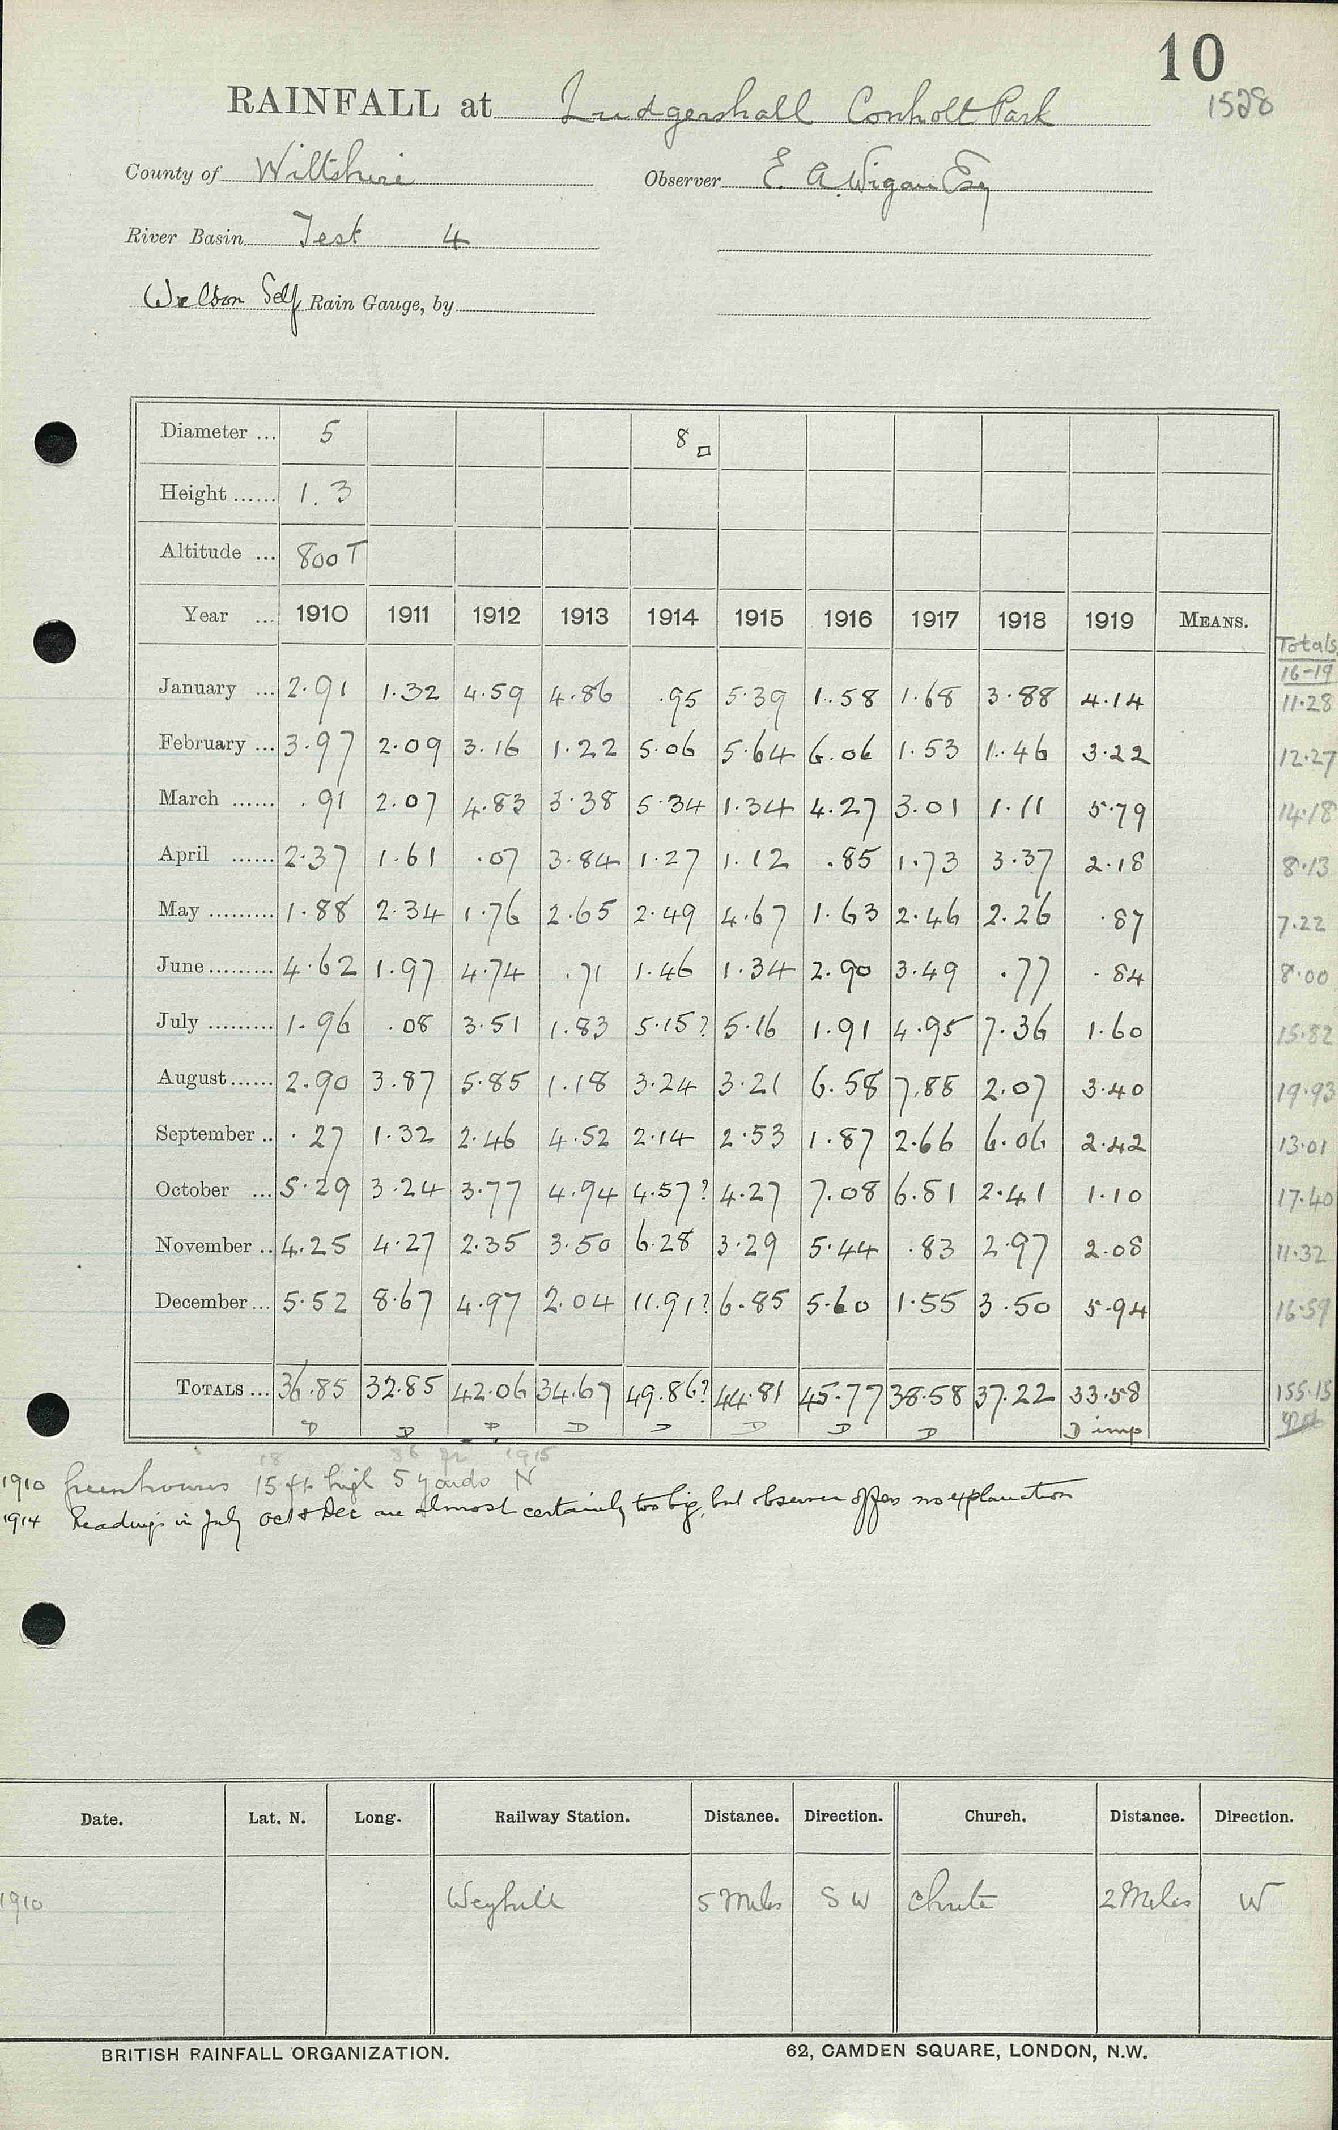 10
RAINFALL at Ludgershall Conholt Park 1528
County of Wiltshire Observer E. A. Wigan Esq
River Basin Test 4
Self Rain Gauge, by
Diameter ... 5 8 □
Height ...... 1.3
Altitude ... 800 T
Year ... 1910 1911 1912 1913 1914 1915 1916 1917 1918 1919 MEANS. Totals 16-19
January ... 2.91 1.32 4.59 4.86 .95 5.39 1.58 1.68 3.88 4.14 11.28
February ... 3.97 2.09 3.16 1.22 5.06 5.64 6.06 1.53 1.46 3.22 12.27
March ...... .91 2.07 4.83 3.38 5.34 1.34 4.27 3.01 1.11 5.79 14.18
April ...... 2.37 1.61 .07 3.84 1.27 1.12 .85 1.73 3.37 2.18 8.13
May ......... 1.88 2.34 1.76 2.65 2.49 4.67 1.63 2.46 2.26 .87 7.22
June ......... 4.62 1.97 4.74 .71 1.46 1.34 2.90 3.49 .77 .84 8.00
July ......... 1.96 .08 3.51 1.83 5.15? 5.16 1.91 4.95 7.36 1.60 15.82
August ...... 2.90 3.87 5.85 1.18 3.24 3.21 6.58 7.88 2.07 3.40 19.93
September .. .27 1.32 2.46 4.52 2.14 2.53 1.87 2.66 6.06 2.42 13.01
October ... 5.29 3.24 3.77 4.94 4.57? 4.27 7.08 6.81 2.41 1.10 17.40
November .. 4.25 4.27 2.35 3.50 6.28 3.29 5.44 .83 2.97 2.08 11.32
December ... 5.52 8.67 4.97 2.04 11.91? 6.85 5.60 1.55 3.50 5.94 16.59
TOTALS ... 36.85 32.85 42.06 34.67 49.86? 44.81 45.77 38.58 37.22 33.58 155.15
D D D D D D D D D imp
18 1915
1910 Greenhouses 15 ft high 5 yards N
1914 Readings in July Oct & Dec are almost certainly too big, but observer offers no explanation
Date. Lat. N. Long. Railway Station. Distance. Direction. Church. Distance. Direction.
1910 Weyhill 5 Miles S W Chute 2 Miles W
BRITISH RAINFALL ORGANIZATION. 62, CAMDEN SQUARE, LONDON, N.W.